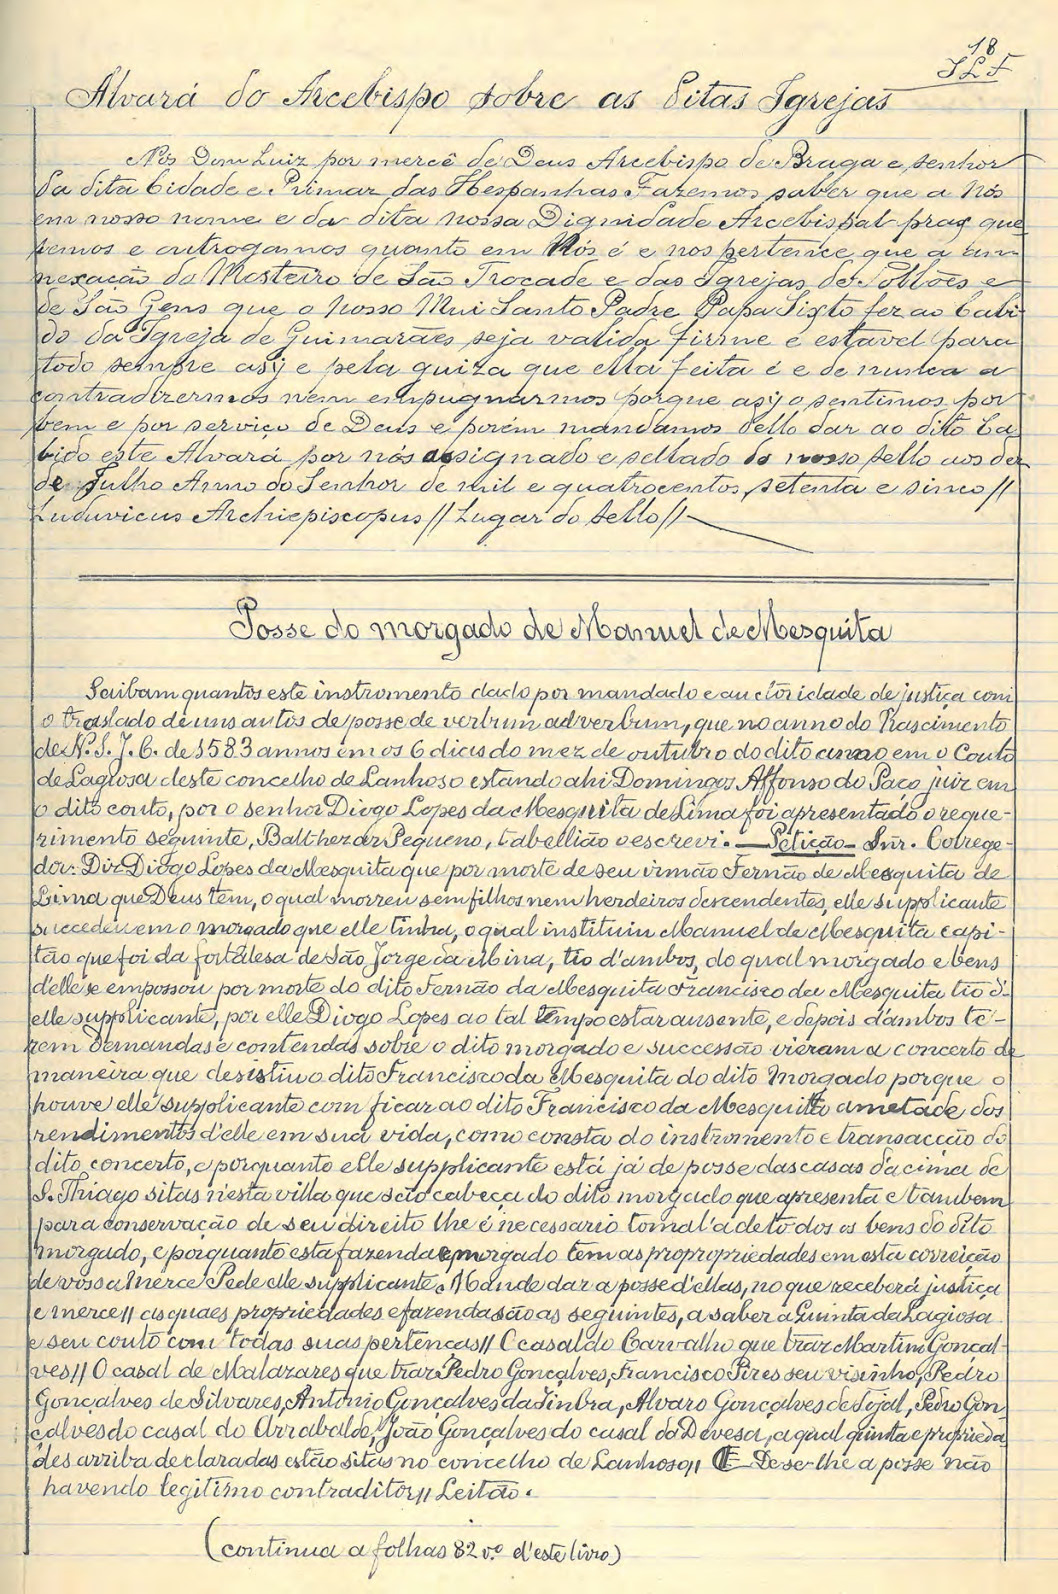 18
Alvará do Arcebispo sobre as ditas Igrejas
Nós Dom Luiz por mercê de Deus Arcebispo de Braga e senhor
da dita Cidade e Primaz das Hespanhas Fazemos saber que a Nós
em nosso nome e da dita nossa Dignidade Arcebispal praz que
remos e outrogamos quanto em Nós é e nos pertence que a un
nexação do Mosteiro de São Trocade e das Igrejas de e
de São Gens que o Nosso Mui Santo Padre Papa Sixto fez ao Cabi
do da Igreja de Guimarães seja valida firme e estavel para
todo sempre asÿ e pela guiza que ella feita é e de nunca a
contradizermos nem empugnarmos porque asÿ o sentimos por
bem e por serviço de Deus e porém mandamos dello dar ao dito Ca
bido este Alvará por nós assignado e sellado do nosso sello aos dez
de Julho Anno do Senhor de mil e quatrocentos, setenta e sinco //
Luduvicus Archiepiscopus // Lugar do Sello //
Posse do morgado de Manuel de Mesquita
Saibam quantos este instromento dado por mandado e auctoricidade de justiça com
o traslado de uns autos de posse de verbum ad verbum, que no anno do Nascimento
de N. S. J. C. de 1583 annos em os 6 dias do mez de outubro do dito anno em o Couto
de Lagiosa deste concelho de Lanhoso estando ahi Domingos Affonso do Paço juiz em
o dito couto, por o senhor Diogo Lopes da Mesquita de Lima foi apresentado o reque-
rimento seguinte, Balthezar Pequeno, tabellião o escrevi. — Petição — Snr. Correge-
dor. Diz Diogo Lopes da Mesquita que por morte de seu irmão Fernão de Mesquita de
Lima que Deus tem, o qual morreu sem filhos nem herdeiros descendentes, elle supplicante
succedeu em o morgado que elle tinha, o qual instituiu Manuel de Mesquita capi-
tão que foi da fortalesa de São Jorge da Mina, tio d'ambos, do qual morgado e bens
d'elle se empossou por morte do dito Fernão da Mesquita Francisco da Mesquita tio d'-
elle supplicante, por elle Diogo Lopes ao tal tempo estar ausente, e depois d'ambos te-
rem demandas e contendas sobre o dito morgado e successão vieram a concerto de
maneira que desistiu o dito Francisco da Mesquita do dito Morgado porque o
houve elle supplicante com ficar ao dito Francisco da Mesquitta ametade dos
rendimentos d'elle em sua vida, como consta do instromento e transacção do
dito concerto, e porquanto elle supplicante está já de posse das casas da cima de
S. Thiago sitas n'esta villa que são cabeça do dito morgado que apresenta e tambem
para conservação de seu direito lhe é necessario tomal'a de todos os bens do dito
morgado, e porquanto esta fazenda e morgado tem as propropriedades em esta correição
de vossa Merce Pede elle supplicante Mande dar a posse d'ellas, no que receberá justiça
e merce // as quaes propriedades e fazenda são as seguintes, a saber a Quinta da Lagiosa
e seu couto com todas suas pertenças // O casal do Carvalho que traz Martim Gonçal-
ves // O casal de Malazares que traz Pedro Gonçalves, Francisco Pires seu visinho, Pedro
Gonçalves de Silvares, Antonio Gonçalves da Jinbra, Alvaro Gonçalves de Sojal, Pedro Gon
çalves do casal do Arrabalde, João Gonçalves do casal da Devesa, a qual quinta e proprieda
des arriba declaradas estão sitas no concelho de Lanhoso // Dese-lhe a posse não
havendo legitimo contraditor // Leitão.
(continua a folhas 82 v.º d'este livro)